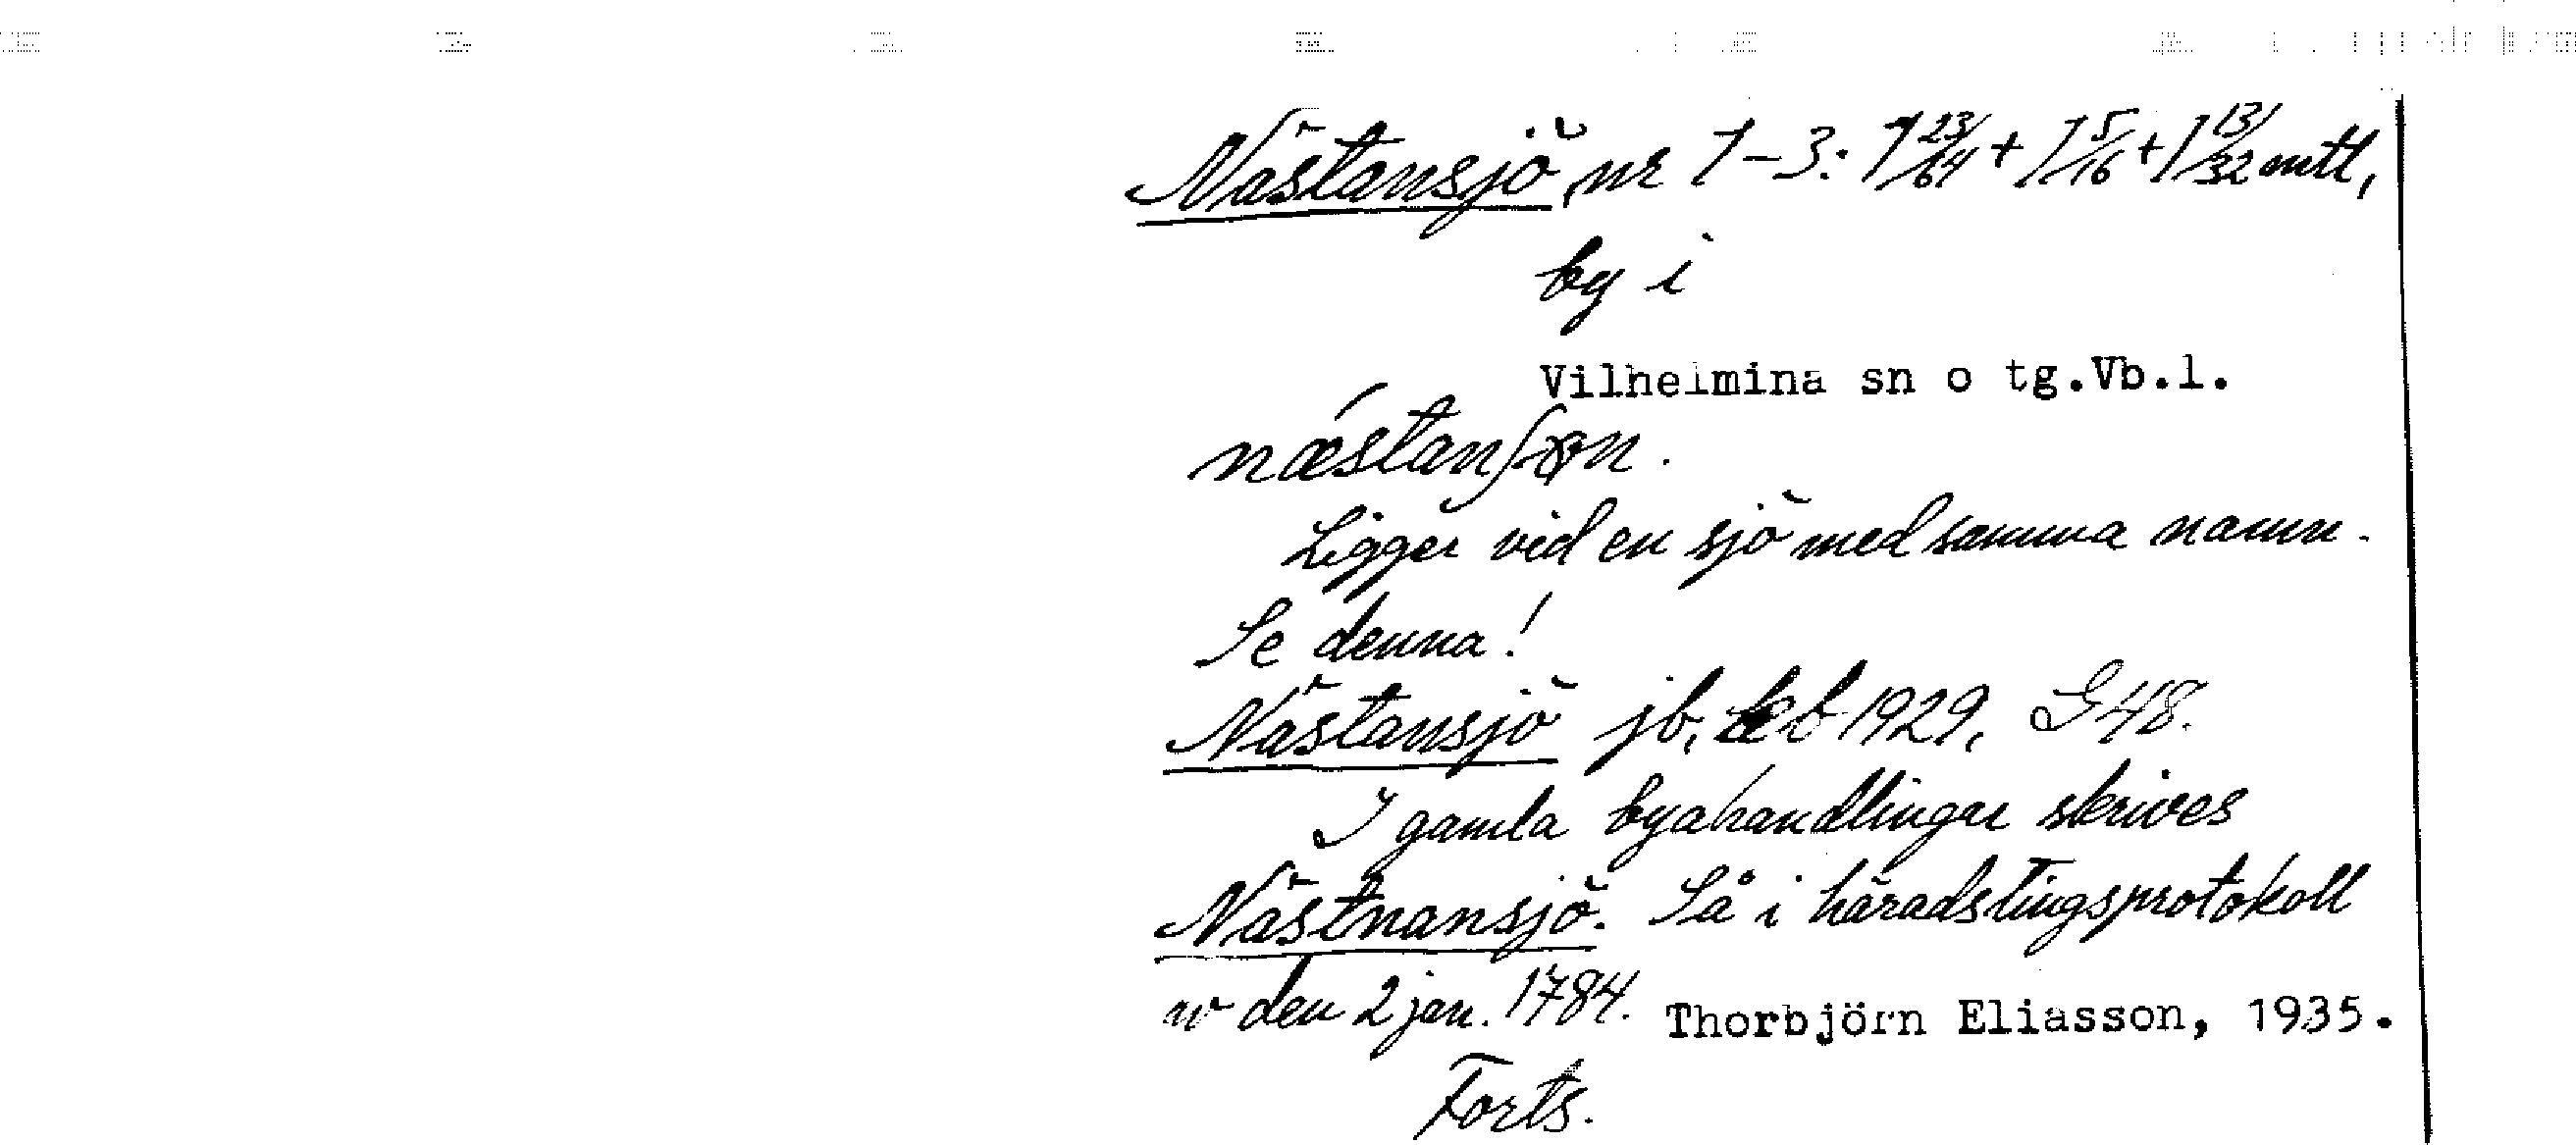 Nästansjö, nr 1-3: 1 23/64 + 1 5/16 + 1 13/32 mtl,
by i
Vilhelmina sn o tg.Vb.l.
Ligger vid en sjö med samma namn.
Se denna!
Nästansjö jb, 1929, G 48.
I gamla byahandlingar skrives
Nästnansjö. Så i häradstingsprotokoll
av den 2 jan. 1784. Thorbjörn Eliasson, 1935.
Forts.